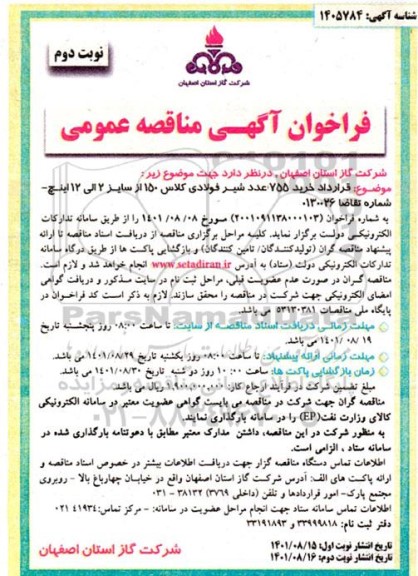 شناسه آگهی: ۱۴۰۵۷۸۴
نوبت دوم
شرکت گاز استان اصفهان
فراخوان آگهی مناقصه عمومی
شرکت گاز استان اصفهان، درنظر دارد جهت موضوع زیر:
موضوع: قرارداد خرید ۷۵۵ عدد شیر فولادی کلاس ۱۵۰ از سایز ۲ الی ۱۲ اینچ-
شماره تقاضا ۰۱۳۰۰۳۶
به شماره فراخوان (۲۰۰۱۰۹۱۱۳۸۰۰۰۱۰۳) مورخ ۱۴۰۱/۰۸/۰۸ را از طریق سامانه تدارکات
الکترونیکی دولت برگزار نماید. کلیه مراحل برگزاری مناقصه از دریافت اسناد مناقصه تا ارائه
پیشنهاد مناقصه گران (تولیدکنندگان/ تامین کنندگان) و بازگشایی پاکت ها از طریق درگاه سامانه
تدارکات الکترونیکی دولت (ستاد) به آدرس www.setadiran.ir انجام خواهد شد و لازم است.
مناقصه گران در صورت عدم عضویت قبلی، مراحل ثبت نام در سایت مذکور و دریافت گواهی
امضای الکترونیکی جهت شرکت در مناقصه را محقق سازند. لازم به ذکر است کد فراخوان در
پایگاه ملی مناقصات ۵۳۱۳۰۳۸۱ می باشد.
مهلت زمانی دریافت اسناد مناقصه از سایت: تا ساعت ۰۸:۰۰ روز پنجشنبه تاریخ
۱۴۰۱/۰۸/۱۹ می باشد.
مهلت زمانی ارائه پیشنهاد: تا ساعت ۰۸:۰۰ روز یکشنبه تاریخ ۱۴۰۱/۰۸/۲۹ می باشد.
زمان بازگشایی پاکت ها: ساعت ۱۰:۰۰ روز دو شنبه تاریخ ۱۴۰۱/۰۸/۳۰ می باشد.
مبلغ تضمین شرکت در فرآیند ارجاع کار: ۱.۹۰۰.۰۰۰.۰۰۰ ریال می باشد.
مناقصه گران جهت شرکت در مناقصه می بایست گواهی عضویت معتبر در سامانه الکترونیکی
کالای وزارت نفت(EP) را در سامانه بارگذاری نمایند.
به منظور شرکت در این مناقصه، داشتن مدارک معتبر مطابق با دعوتنامه بارگذاری شده در
سامانه ستاد، الزامی است.
اطلاعات تماس دستگاه مناقصه گزار جهت دریافت اطلاعات بیشتر در خصوص اسناد مناقصه و
ارائه پاکت های الف: آدرس شرکت گاز استان اصفهان واقع در خیابان چهارباغ بالا - روبروی
مجتمع پارک- امور قراردادها و تلفن (داخلی ۳۷۶۹) ۳۸۱۳۲ - ۰۳۱
اطلاعات تماس سامانه ستاد جهت انجام مراحل عضویت در سامانه: - مرکز تماس: ۴۱۹۳۴ ۰۲۱
دفتر ثبت نام: ۳۳۹۹۹۸۱۸ و ۳۳۱۹۱۸۹۳
تاریخ انتشار نوبت اول: ۱۴۰۱/۰۸/۱۵
تاریخ انتشار نوبت دوم: ۱۴۰۱/۰۸/۱۶
شرکت گاز استان اصفهان